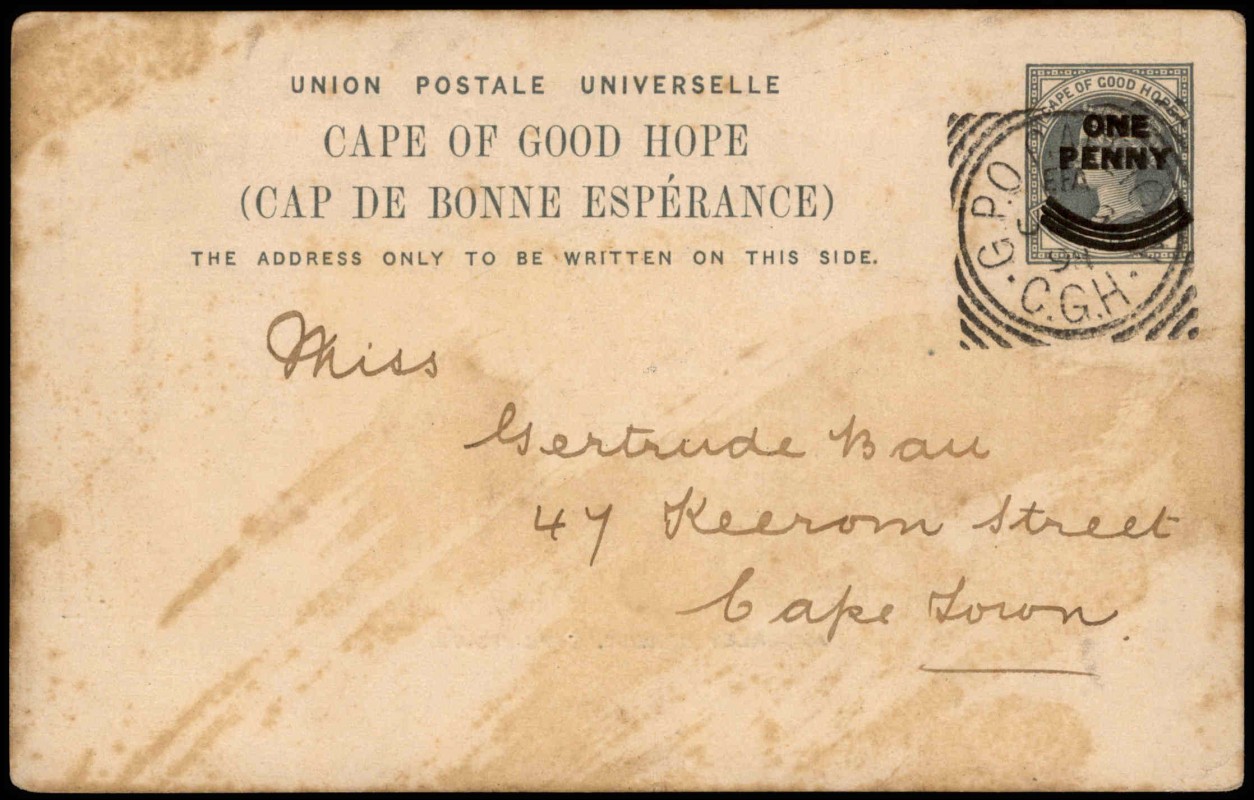 UNION POSTALE UNIVERSELLE
CAPE OF GOOD HOPE
(CAP DE BONNE ESPÉRANCE)
THE ADDRESS ONLY TO BE WRITTEN ON THIS SIDE.
CAPE OF GOOD HOPE
ONE
PENNY
G.P.O.
C.G.H.
Miss
Gertrude Bau
47 Keerom Street
Cape Town.